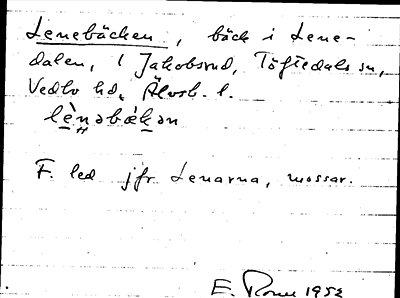 Lenebäcken, bäck i Lene-
dalen, i Jakobsrud, Töftedals sn,
Vedbo hd, Älvsb. l.
lènəbækən
F. led jfr Lenarna, mossar.
E. 1952